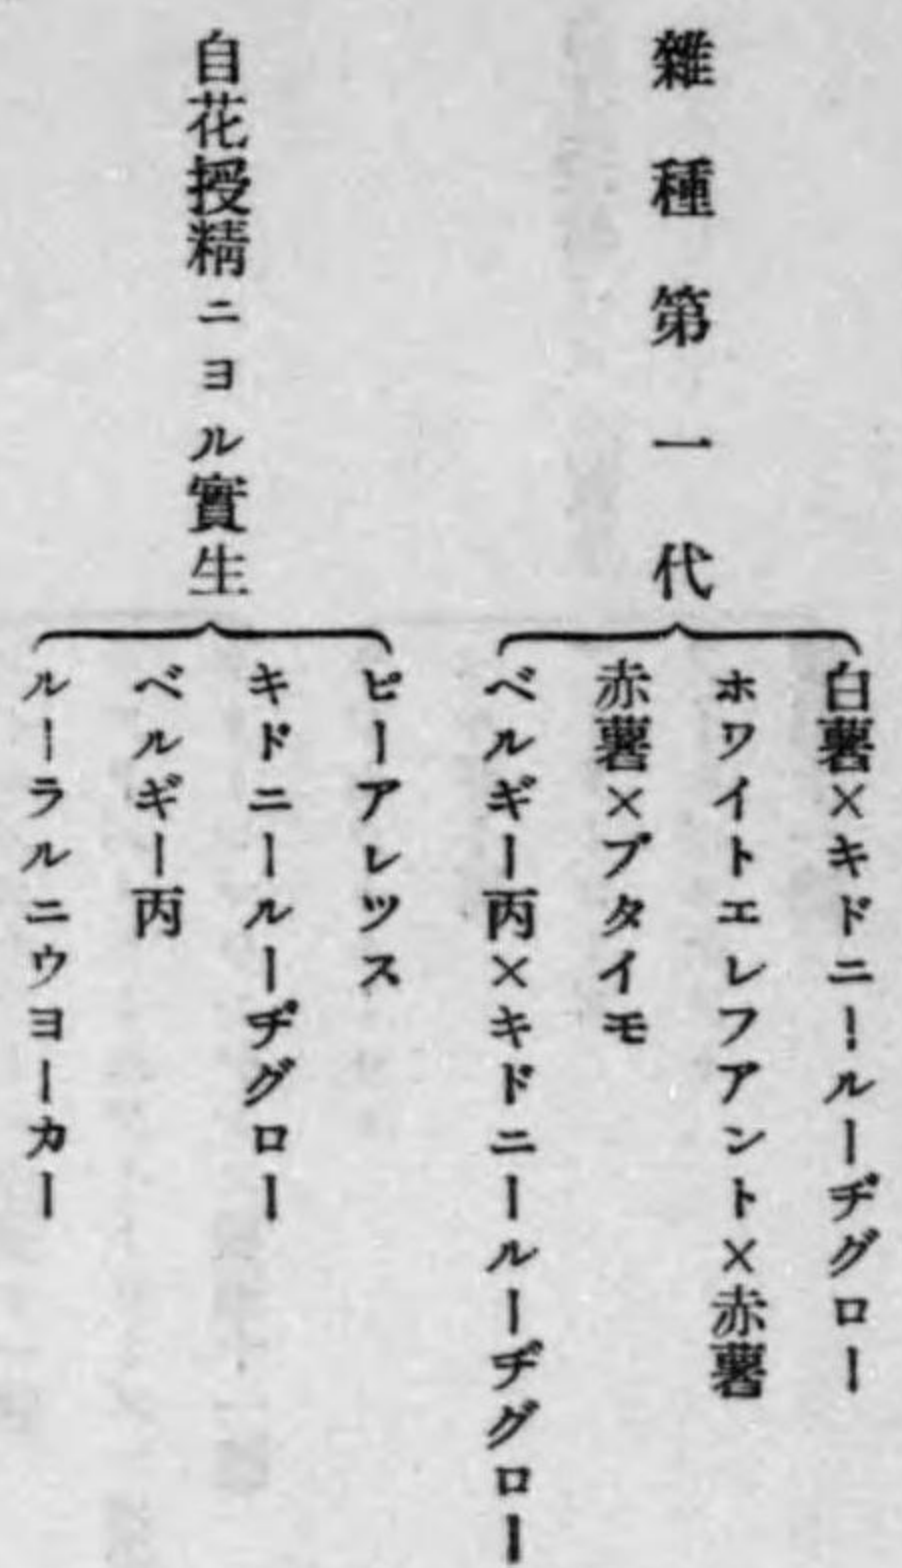 雜種第一代
白薯×キドニールーヂグロー
ホワイトエレフアント×赤薯
赤薯×ブタイモ
ベルギー丙×キドニールーヂグロー
自花授精ニヨル實生
ピーアレツス
キドニールーヂグロー
ベルギー丙
ルーラルニウヨーカー